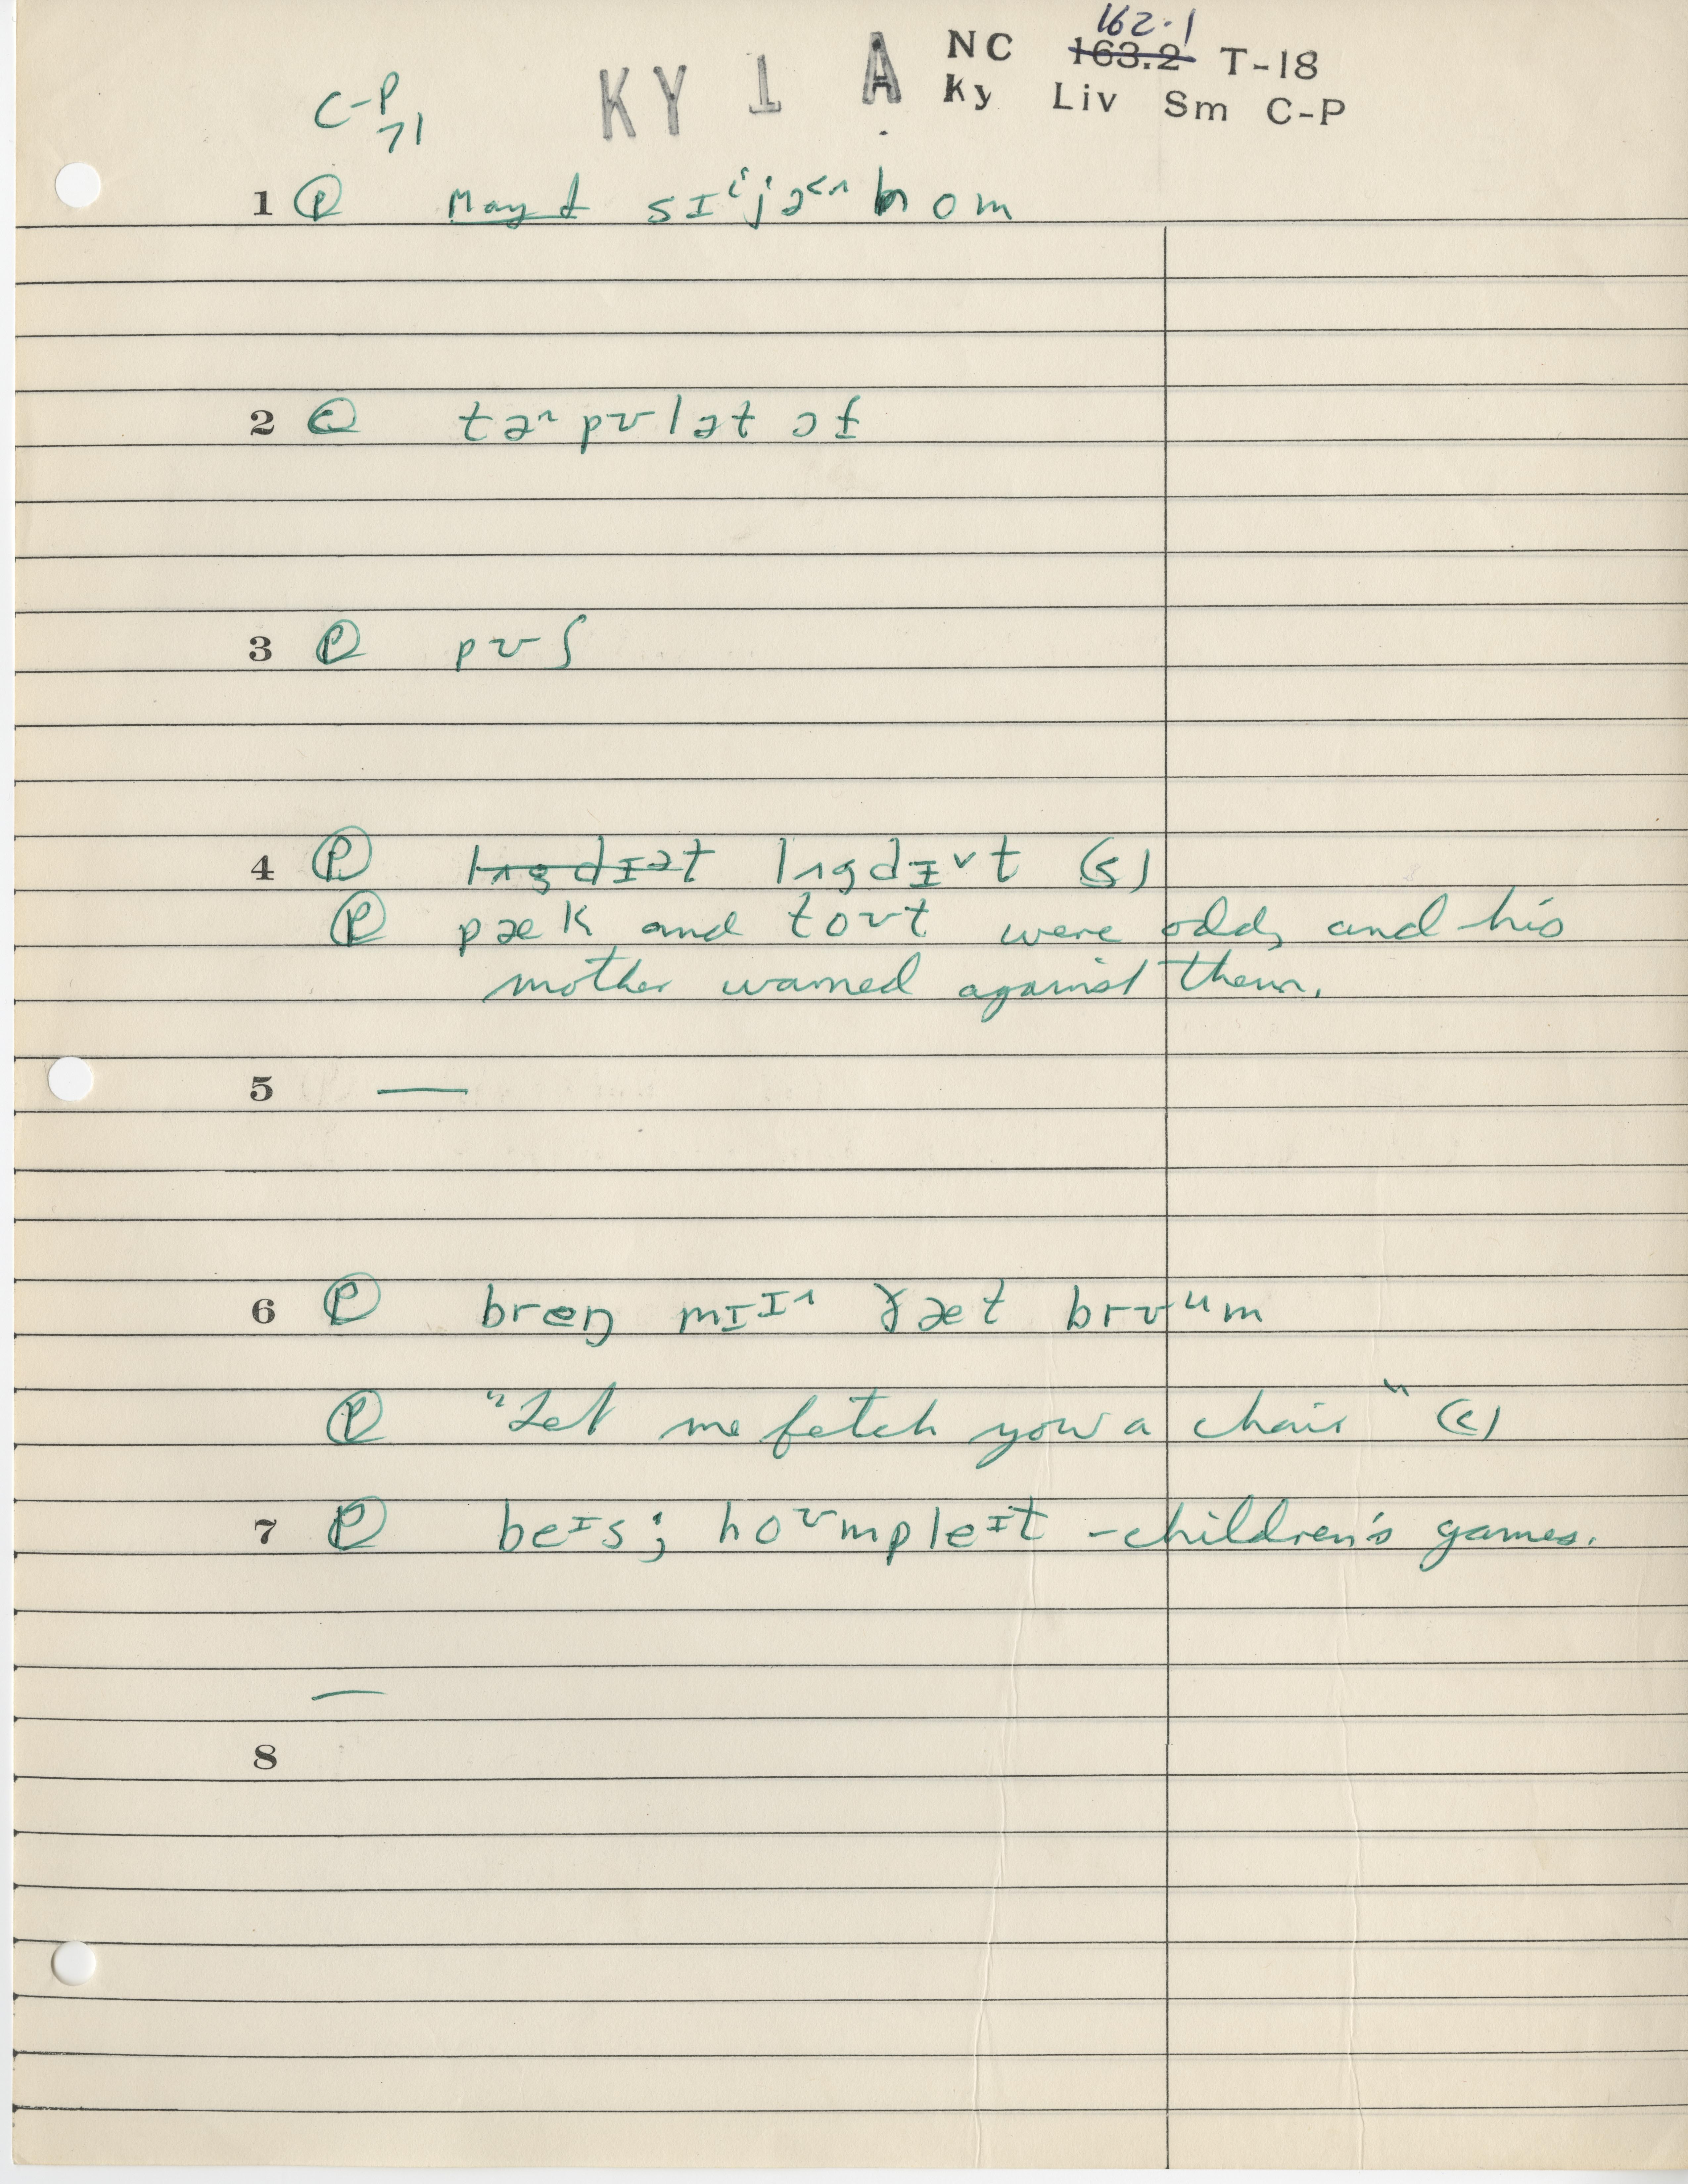 162.1
KY 1 A NC 163.2 T-18
Ky Liv Sm C-P
C-P
71
1 Ⓟ May I sɪⁱjə<^ hom
2 Ⓒ tə^ pʊlət ɔf
3 Ⓟ pʊʃ
4 Ⓟ lʌgdɪət lʌgdɪᵛt (s)
Ⓟ pæk and toʊt were odd, and his
mother warned against them.
5 —
6 Ⓟ breŋ mɪɪ^ ðæt brʊᵘm
Ⓟ "Let me fetch you a chair" (c)
7 Ⓟ beᶦs; hoᶷmpleᶦt - children's games.
—
8